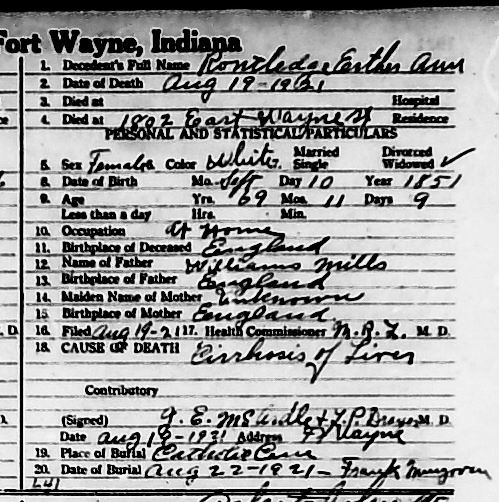 Fort Wayne, Indiana
1. Decedent's Full Name Routledge Esther Ann
2. Date of Death Aug 19-1921
3. Died at Hospital
4. Died at 1802 East Wayne St Residence
PERSONAL AND STATISTICAL PARTICULARS
5. Sex Female Color White Married Single Divorced Widowed ✓
8. Date of Birth Mo. Sept Day 10 Year 1851
9. Age Yrs. 69 Mos. 11 Days 9
Less than a day Hrs. Min.
10. Occupation At Home
11. Birthplace of Deceased England
12. Name of Father Williams Mills
13. Birthplace of Father England
14. Maiden Name of Mother Unknown
15. Birthplace of Mother England
16. Filed Aug 19-21 17. Health Commissioner M. D.
18. CAUSE OF DEATH Cirrhosis of Liver
Contributory
(Signed) M. D.
Date Aug 19-1921 Address Ft Wayne
19. Place of Burial Catholic Cem
20. Date of Burial Aug 22-1921- Frank